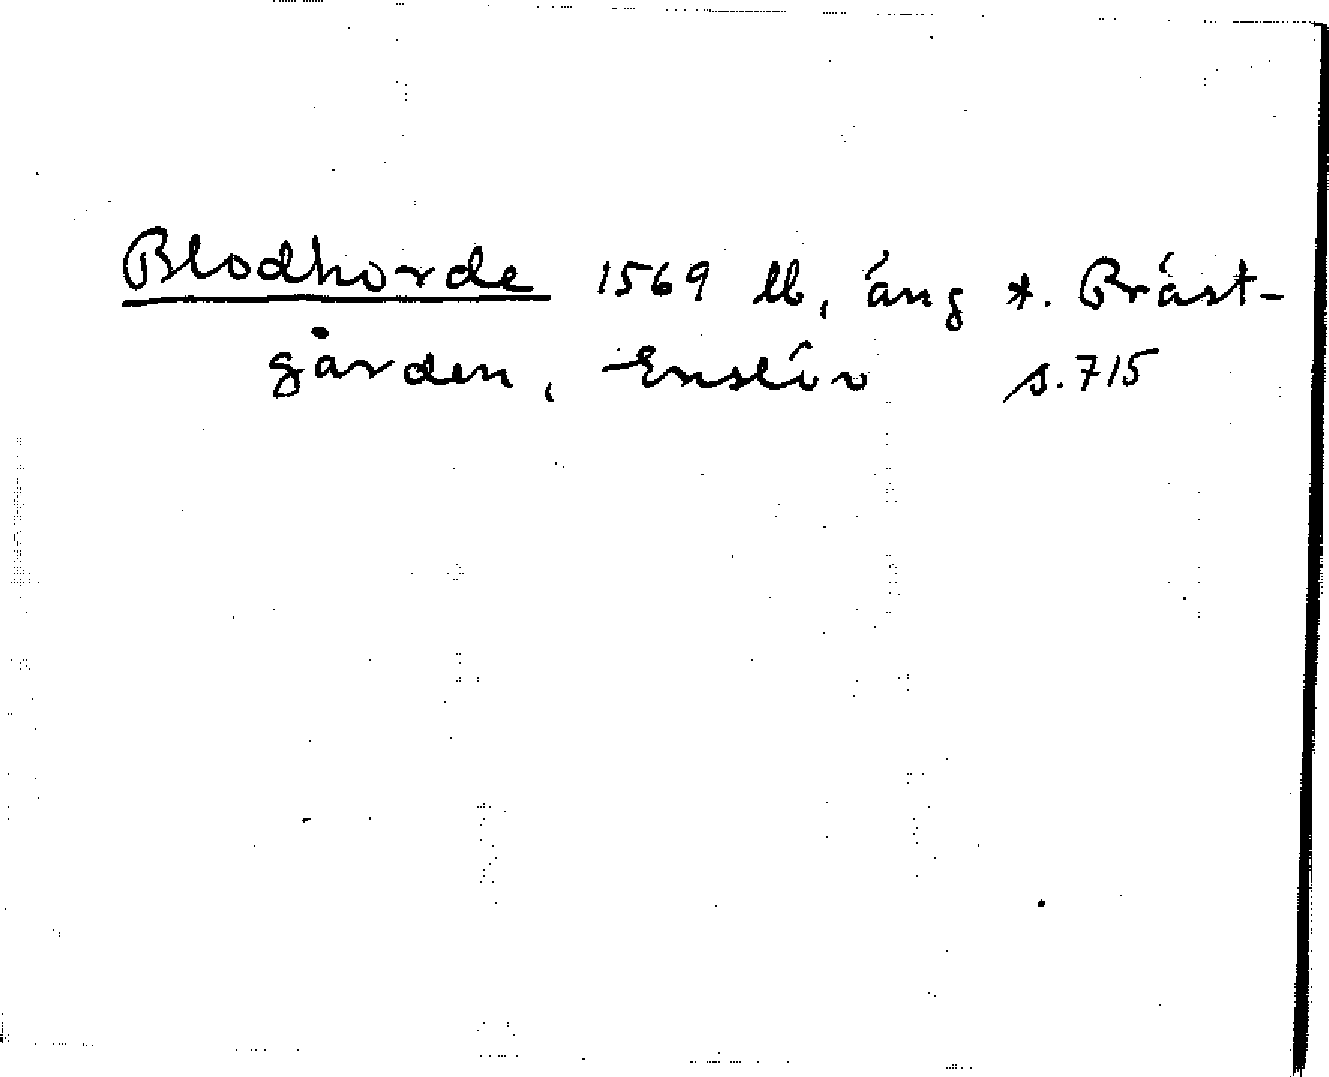 Blodhorde 1569 lb, äng *. Präst-
gården, Enslöv s. 715